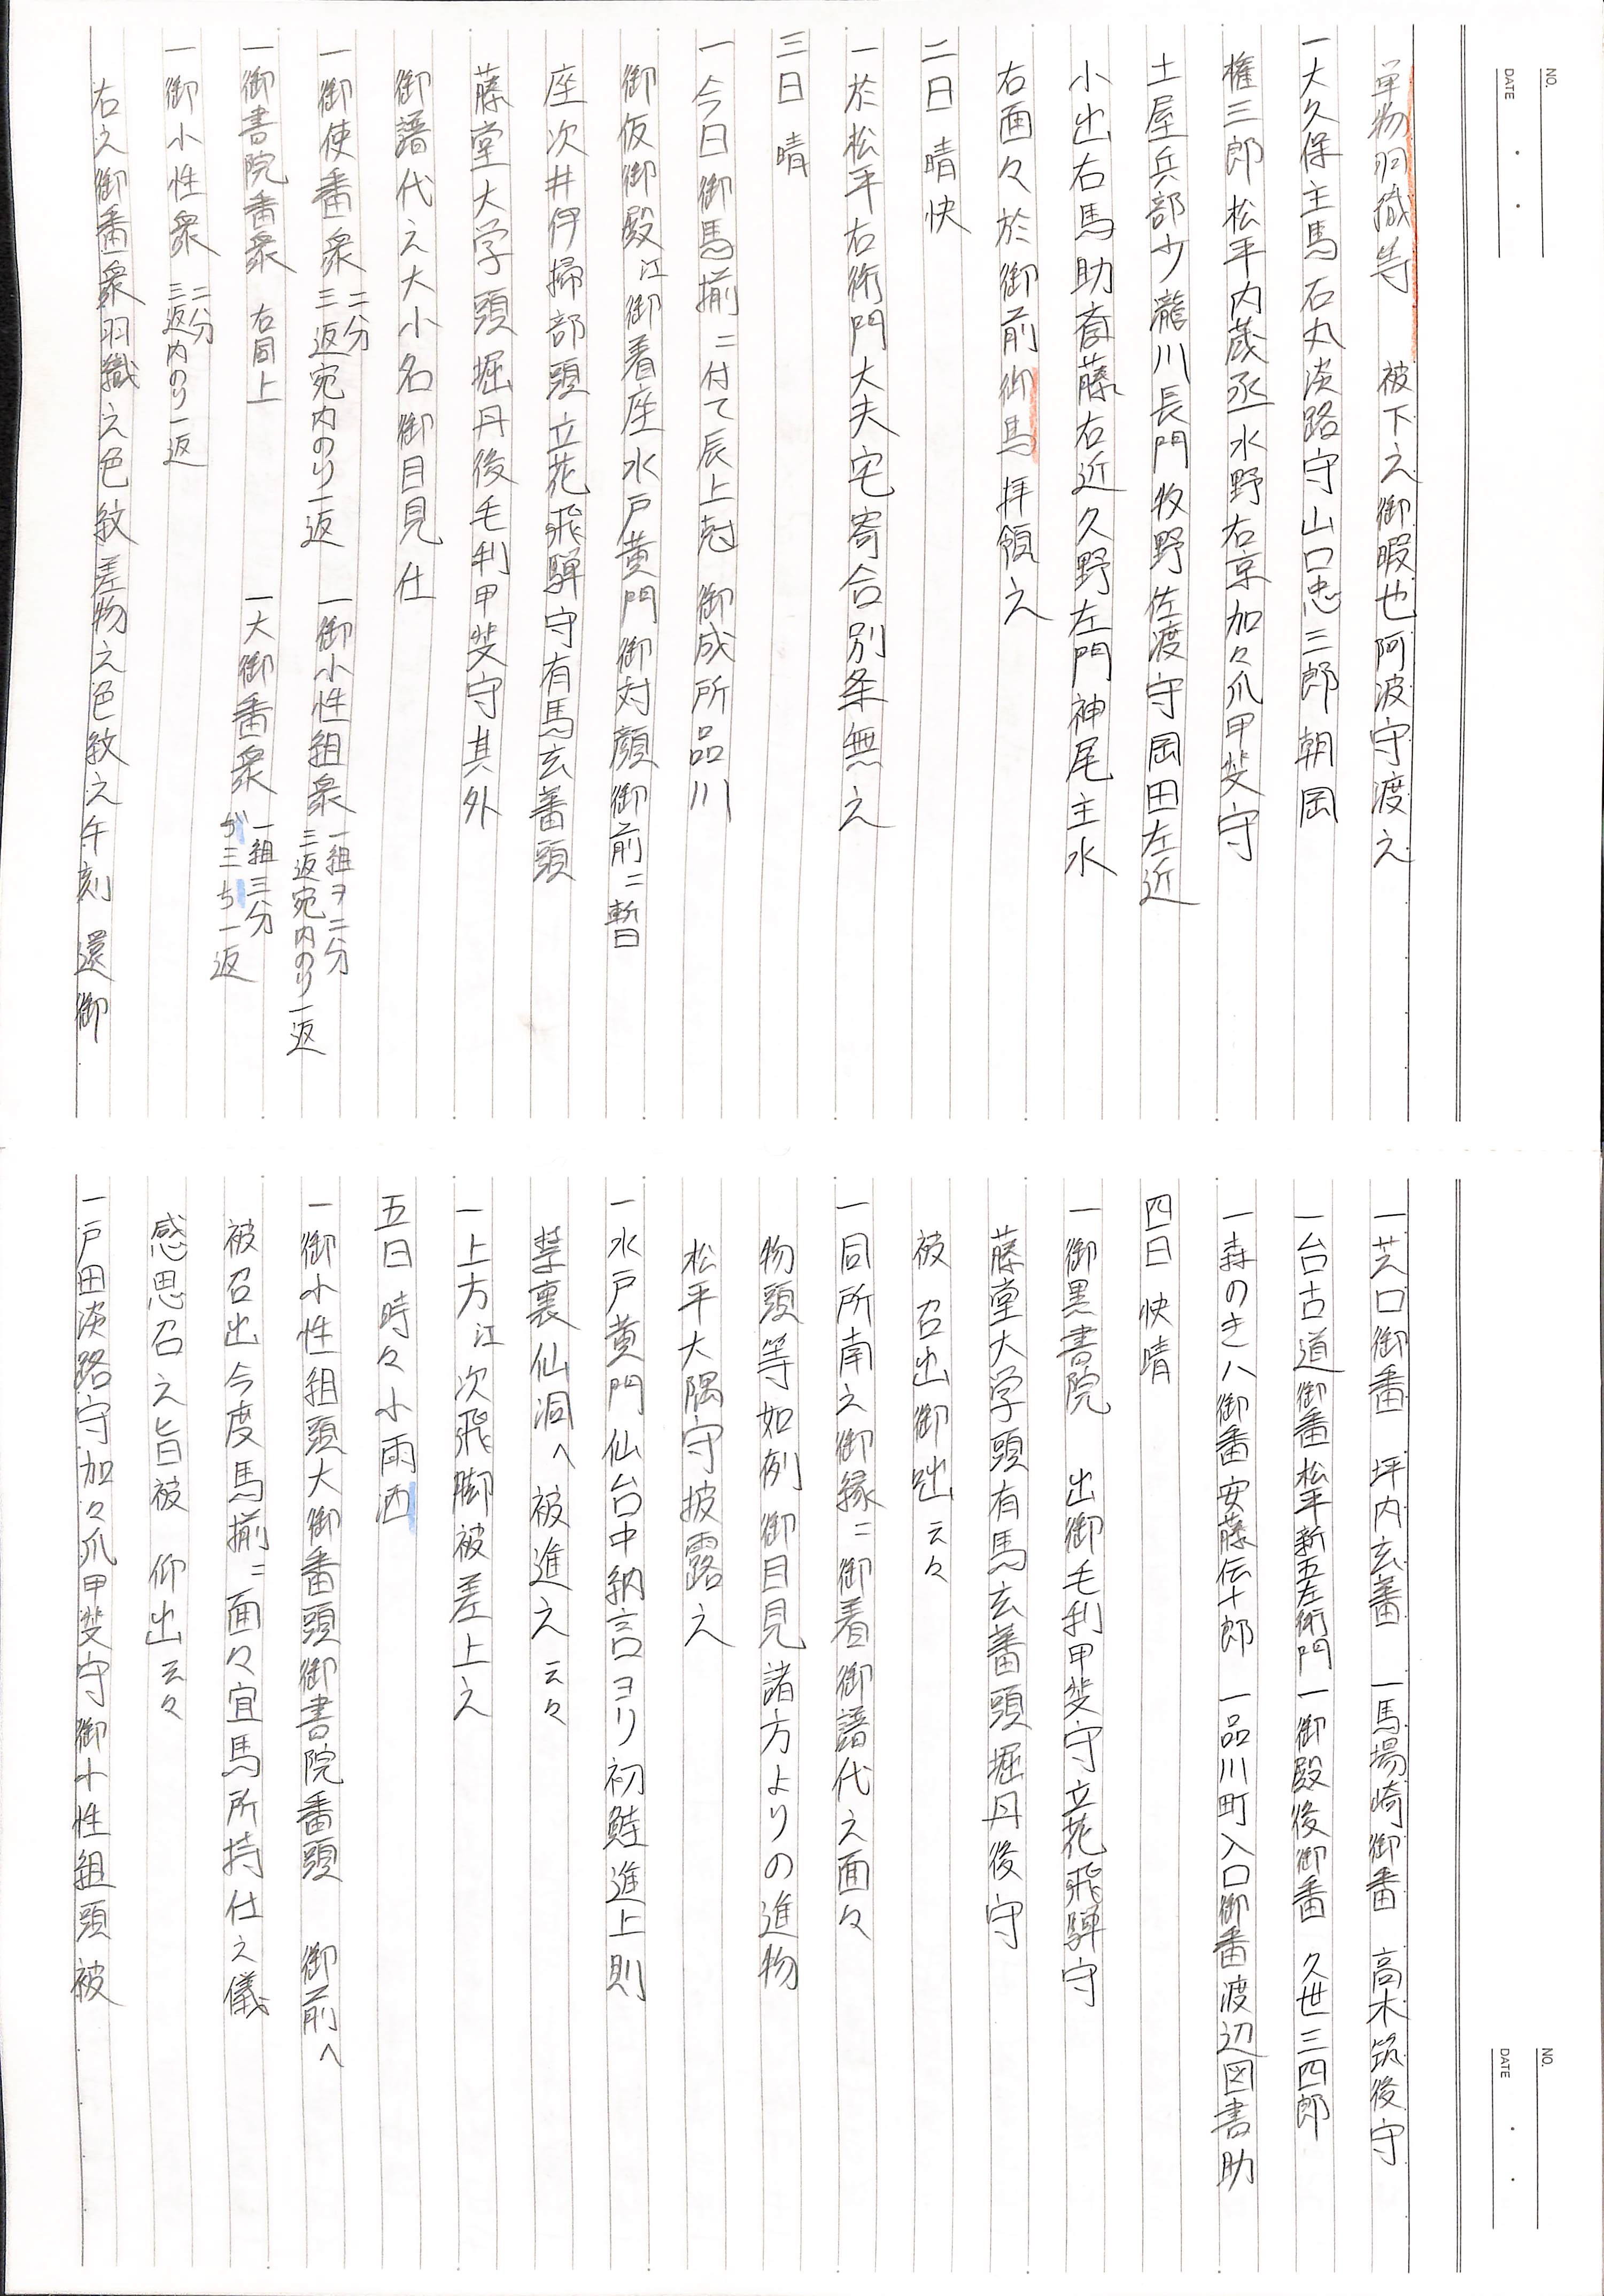 NO.
DATE
単物羽織等 被下之御暇也阿波守渡之
一大久保主馬石丸淡路守山口忠三郎朝岡
権三郎松平内蔵丞水野右京加々爪甲斐守
土屋兵部少瀧川長門牧野佐渡守岡田左近
小出右馬助斎藤右近久野左門神尾主水
右面々於御前御馬拝領之
二日 晴快
一於松平右衛門大夫宅寄合別条無之
三日 晴
一今日御馬揃ニ付て辰上剋 御成所品川
御仮御殿江御着座水戸黄門御対顔御前ニ暫
座次井伊掃部頭立花飛騨守有馬玄蕃頭
藤堂大学頭堀丹後毛利甲斐守其外
御譜代之大小名御目見仕
一御使番衆 二分 三返宛内のり一返 一御小性組衆 一組ヲ二分 三返宛内のり一返
一御書院番衆 右同上 一大御番衆 一組三分 が三ち一返
一御小性衆 二分 三返内のり一返
右之御番衆羽織之色紋差物之色紋之午刻 還御
NO.
DATE
一芝口御番 坪内玄蕃 一馬場崎御番 高木筑後守
一台古道御番松平新五左衛門 一御殿後御番 久世三四郎
一森のきハ御番安藤伝十郎 一品川町入口御番渡辺図書助
四日 快晴
一御黒書院 出御毛利甲斐守立花飛騨守
藤堂大学頭有馬玄蕃頭堀丹後守
被 召出御咄云々
一同所南之御縁ニ御着御譜代之面々
物頭等如例御目見諸方よりの進物
松平大隅守披露之
一水戸黄門仙台中納言ヨリ初鮭進上則
禁裏仙洞へ被進之云々
一上方江次飛脚被差上之
五日 時々小雨洒
一御小性組頭大御番頭御書院番頭 御前へ
被召出今度馬揃ニ面々宜馬所持仕之儀
感思召之旨被 仰出云々
一戸田淡路守加々爪甲斐守御小性組頭被